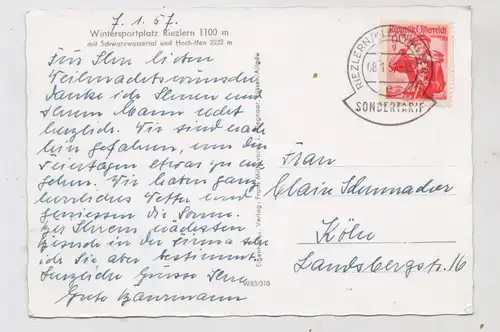 7.1.57.
Wintersportplatz Riezlern 1100 m
mit Schwarzwassertal und Hoch-Ifen 2232 m
Für Ihre lieben
Weihnachtswünsche
danke ich Ihnen und
Ihrem Mann recht
herzlich. Wir sind nach
hier gefahren, um den
Feiertagen etwas zu ent
gehen. Wir haben ganz
herrliches Wetter und
geniessen die Sonne.
Bei Ihrem nächsten
Besuch in der Firma sehe
ich Sie aber bestimmt
Herzliche Grüsse Ihre
Grete
W83/310
Republik Österreich
RIEZLERN
SONDERTARIF
Frau
Claire Schumacher
Köln
Landsbergstr. 16